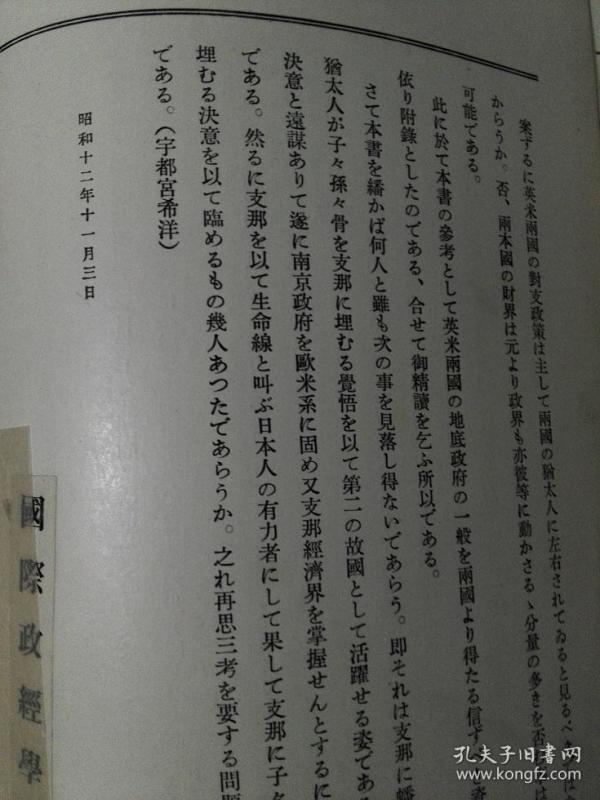 案ずるに英米兩國の對支政策は主して兩國の猶太人に左右されてゐると見るべ
からうか。否、兩本國の財界は元より政界も亦彼等に動かさるゝ分量の多きを否
可能である。
此に於て本書の參考として英米兩國の地底政府の一般を兩國より得たる信ず
依り附錄としたのである、合せて御精讀を乞ふ所以である。
さて本書を繙かば何人と雖も次の事を見落し得ないであらう。即それは支那に蟠
猶太人が子々孫々骨を支那に埋むる覺悟を以て第二の故國として活躍せる姿であ
決意と遠謀ありて遂に南京政府を歐米系に固め又支那經濟界を掌握せんとするに
である。然るに支那を以て生命線と叫ぶ日本人の有力者にして果して支那に子々
埋むる決意を以て臨めるもの幾人あつたであらうか。之れ再思三考を要する問題
である。（宇都宮希洋）
昭和十二年十一月三日
國際政經學
孔夫子旧书网
www.kongfz.com